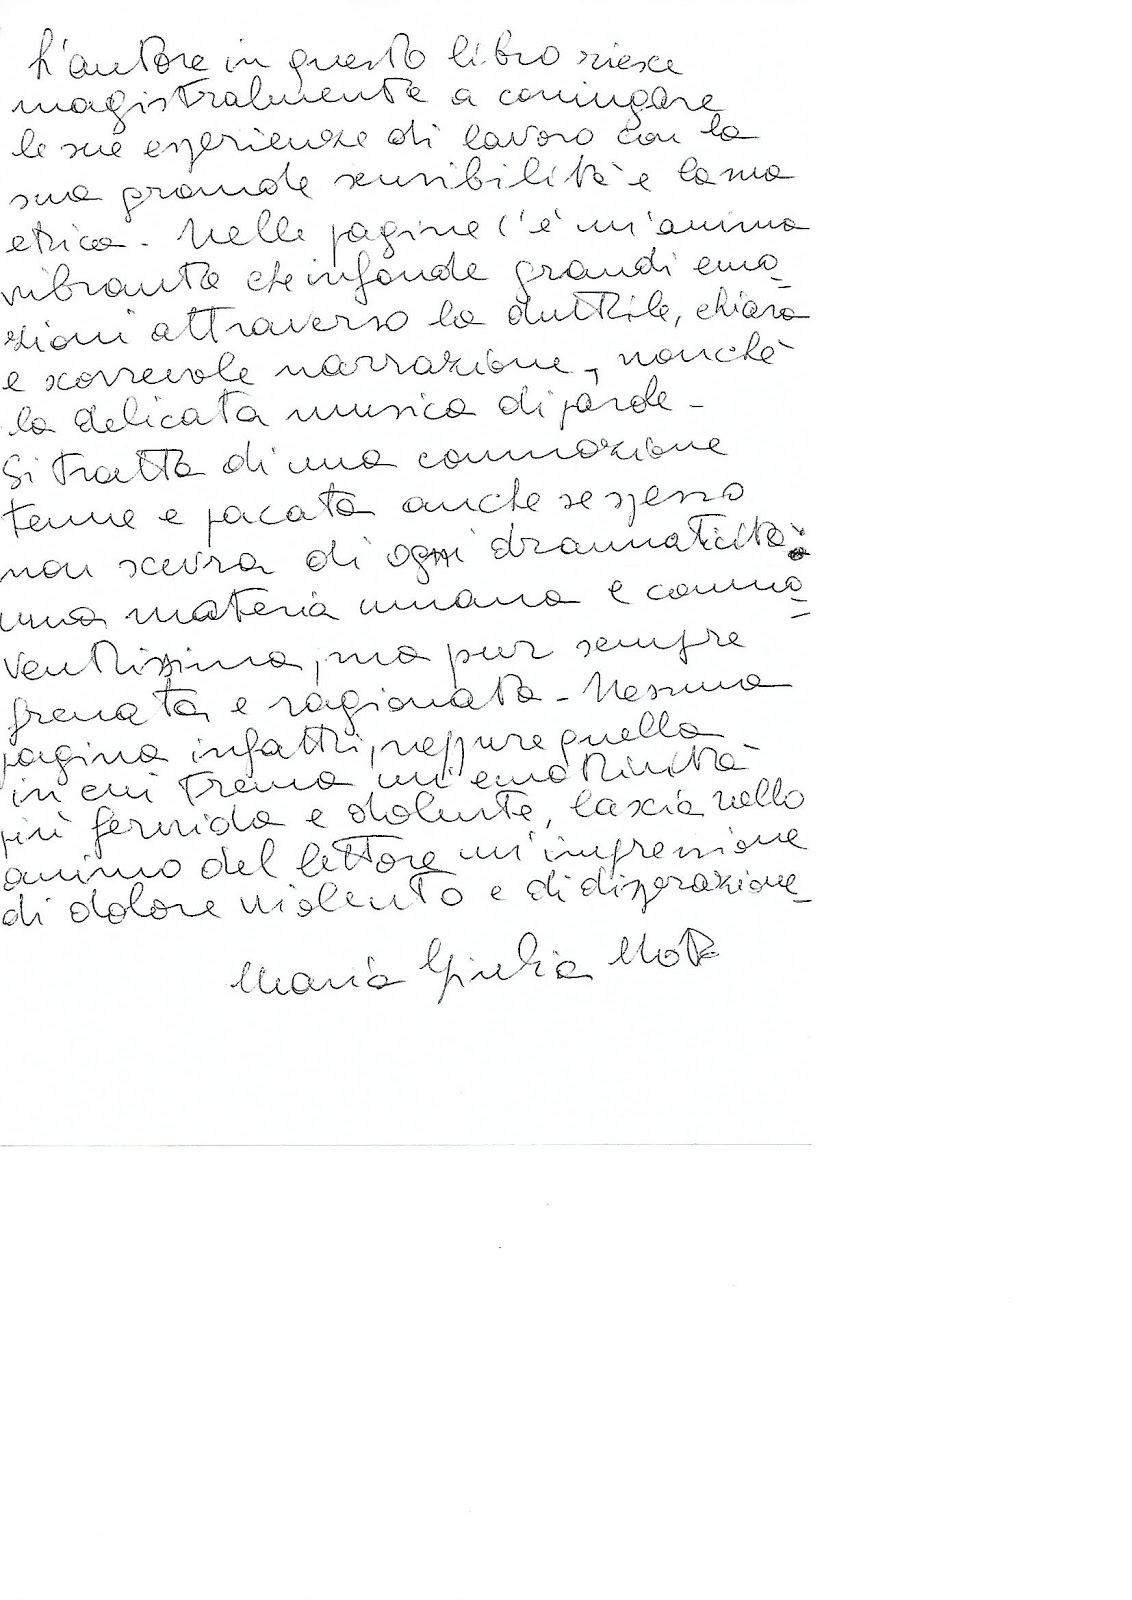 L'autore in questo libro riesce
magistralmente a coniugare
le sue esperienze di lavoro con la
sua grande sensibilità e la sua
etica. Nelle pagine c'è un'anima
vibrante che infonde grandi emo-
zioni attraverso la duttile, chiara
e scorrevole narrazione, nonchè
la delicata musica di parole -
Si tratta di una commozione
tenue e pacata anche se spesso
non scevra di ogni drammaticità:
una materia umana e commo-
ventissima, ma pur sempre
frenata e ragionata - Nessuna
pagina infatti, neppure quella
in cui trema un'emotività
più fervida e dolente, lascia nello
animo del lettore un'impressione
di dolore violento e di disperazione -
Maria Giulia